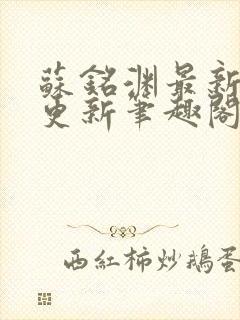 蘇銘淵最新
更新筆趣閣
西紅柿炒鵝蛋